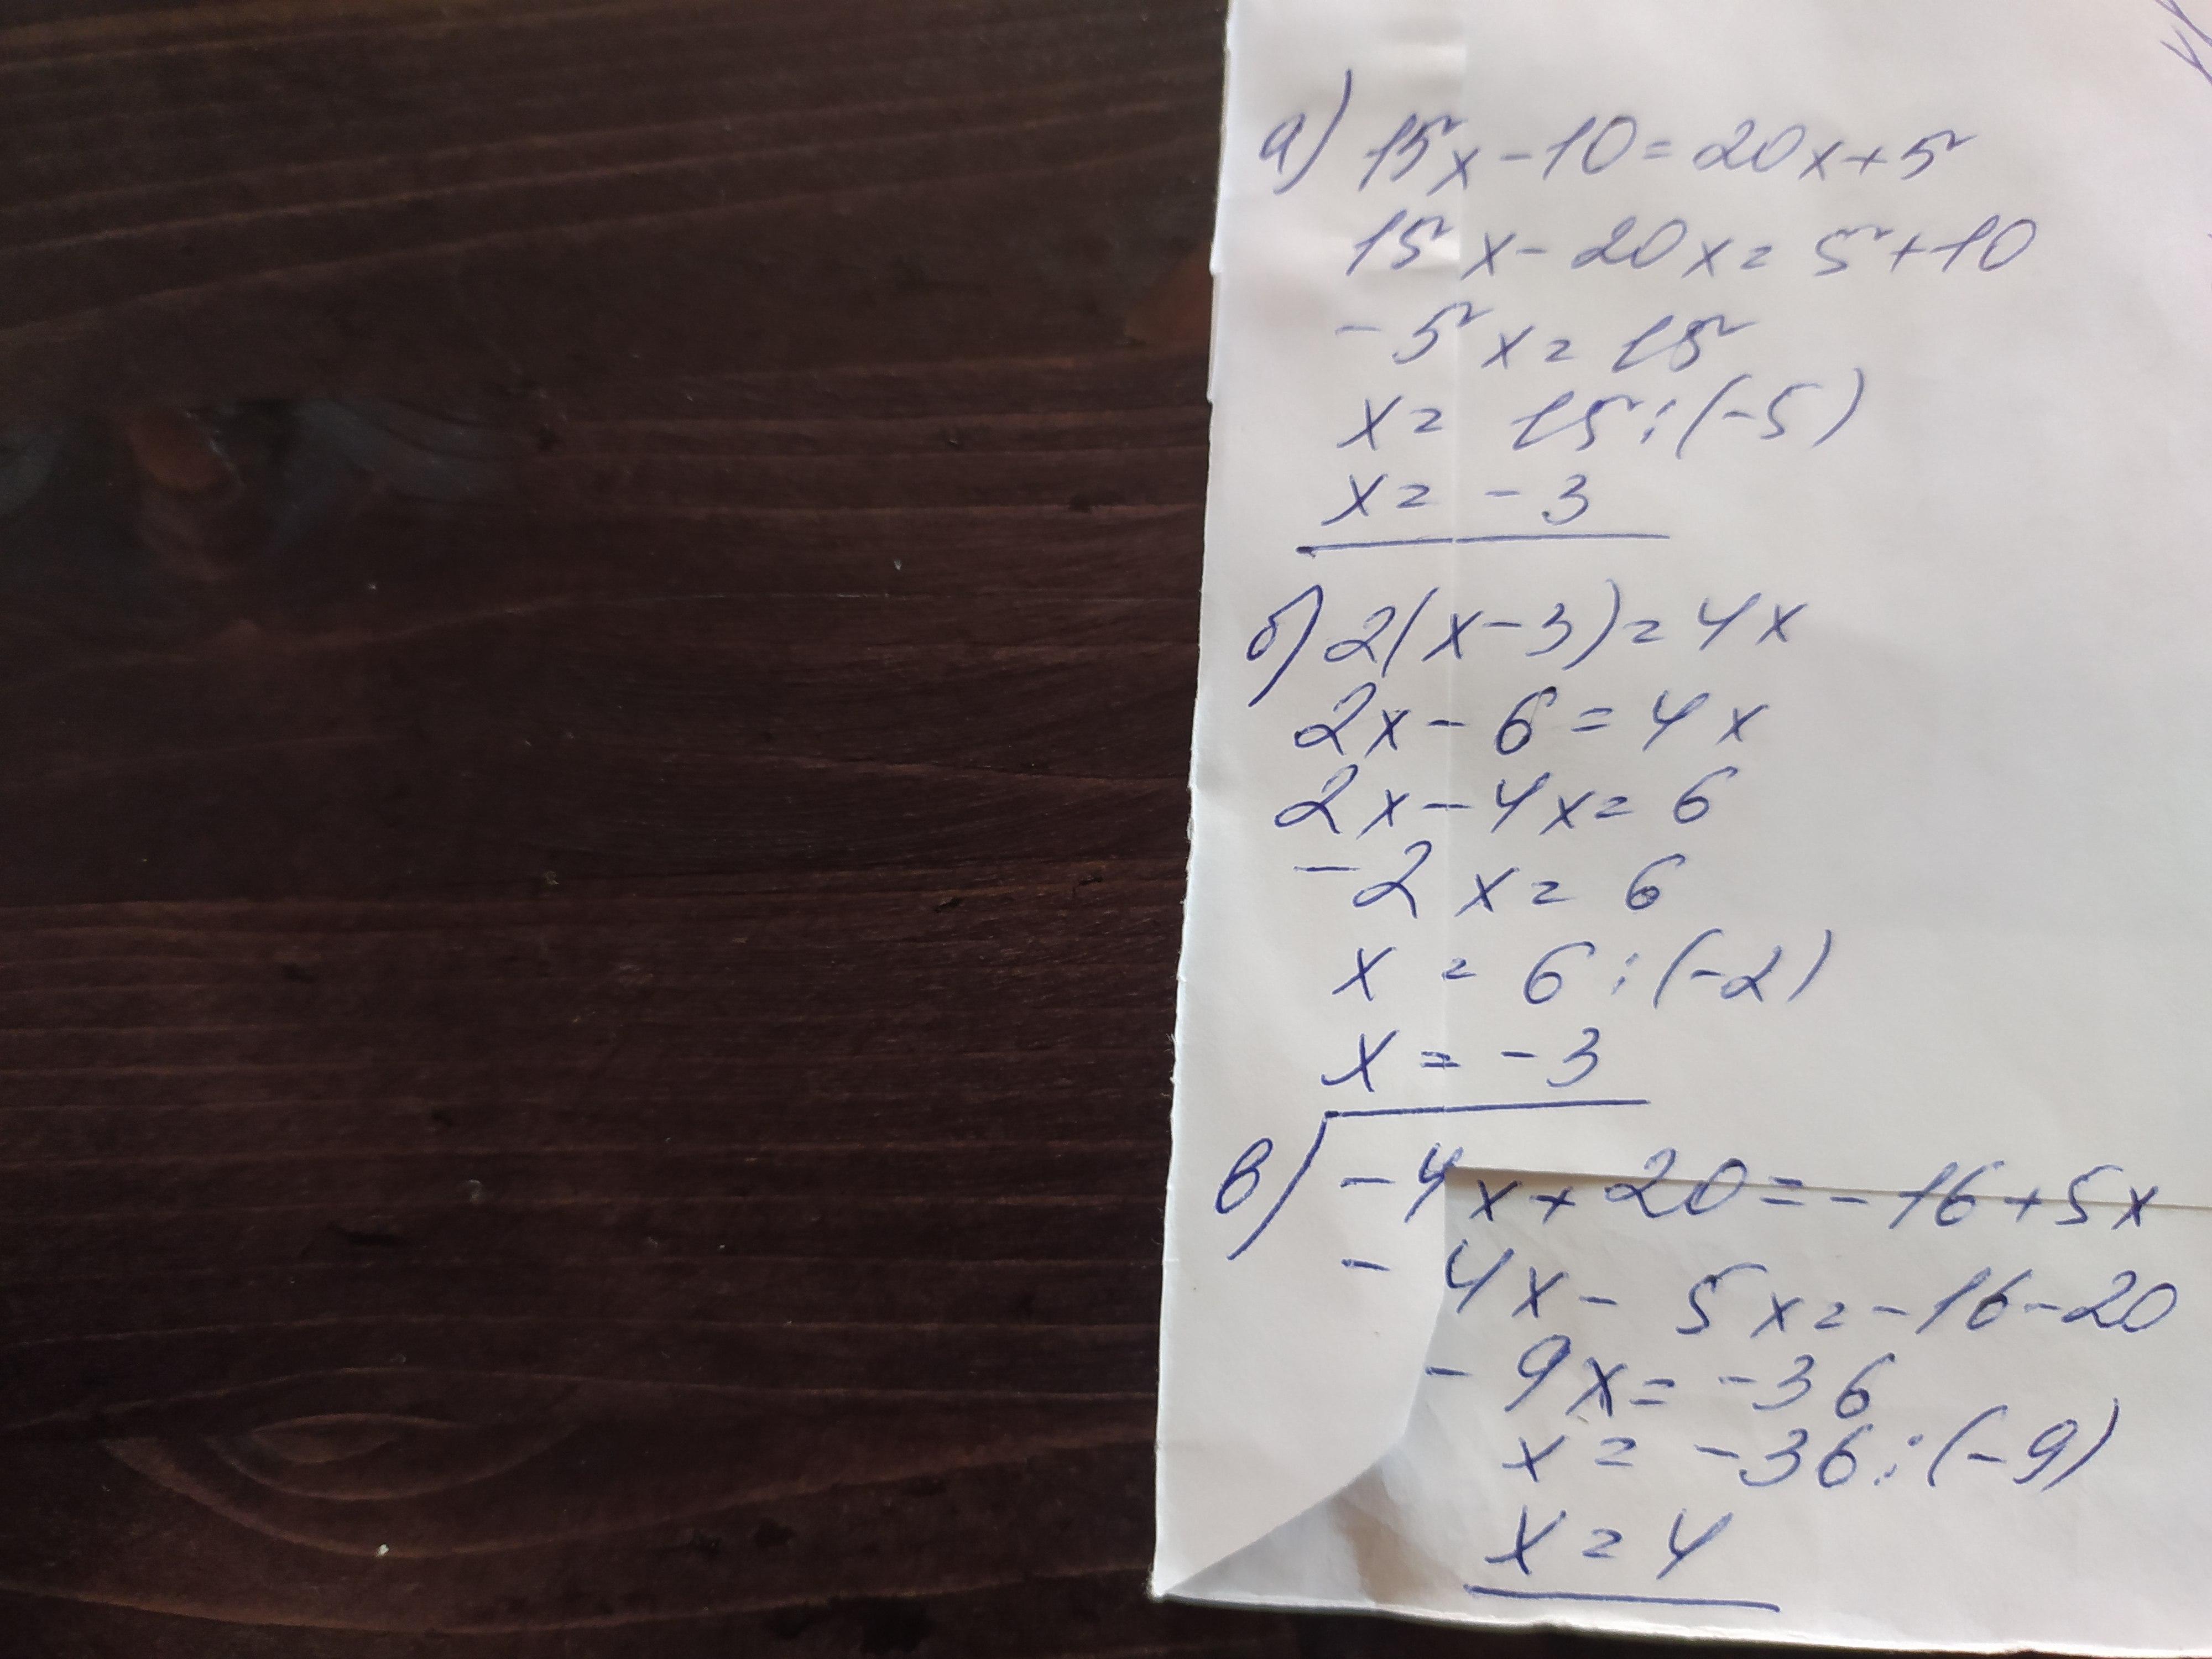 а) 15x-10=20x+5
15x-20x=5+10
-5x=15
x=15:(-5)
x=-3
б) 2(x-3)=4x
2x-6=4x
2x-4x=6
-2x=6
x=6:(-2)
x=-3
в) -4x+20=-16+5x
-4x-5x=-16-20
-9x=-36
x=-36:(-9)
x=4